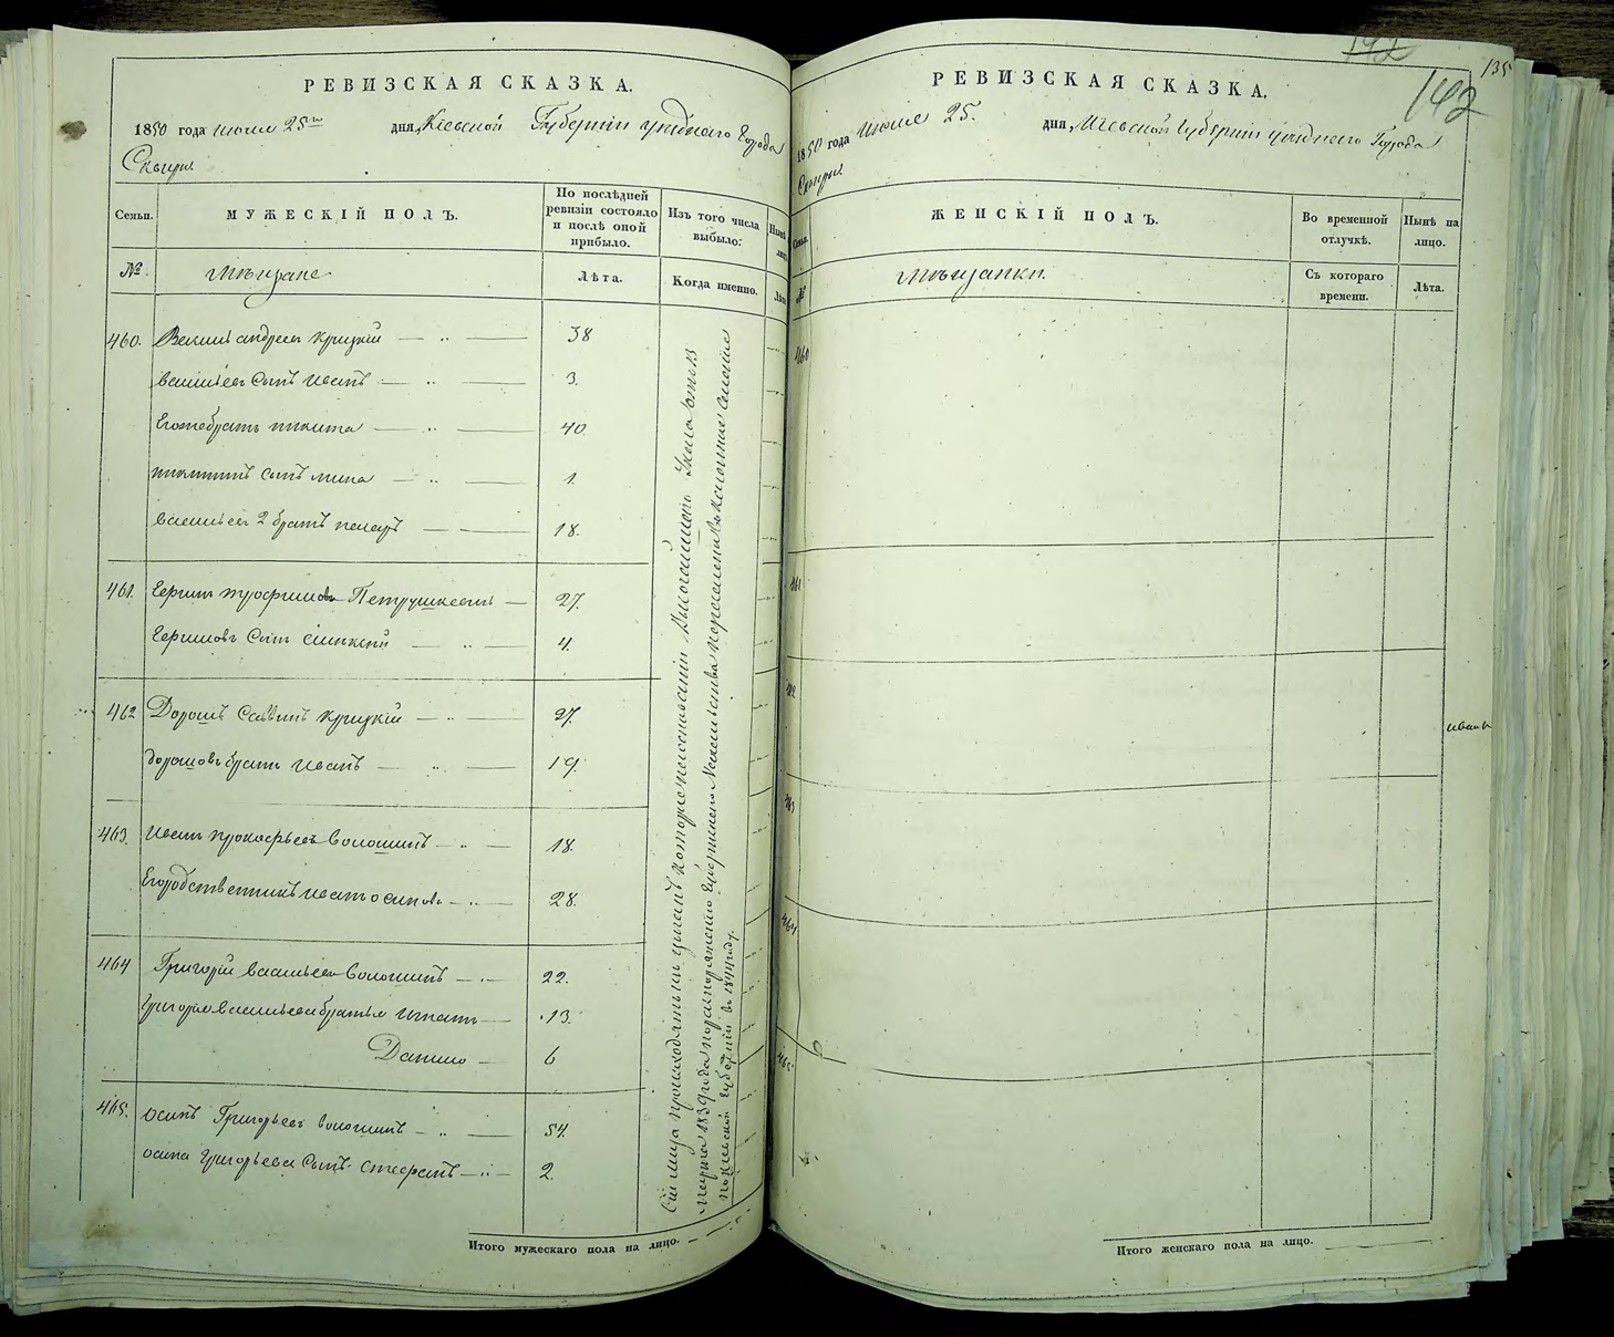 РЕВИЗСКАЯ СКАЗКА.
1850 года июня 25го дня, Кіевской Губерніи уѣзднаго Города
Сквиры
Семьи. МУЖЕСКІЙ ПОЛЪ. По послѣдней ревизіи состояло и послѣ оной прибыло. Изъ того числа выбыло. Нынѣ на лицо.
№ мѣщане Лѣта. Когда именно. Лѣта.
460. Василій андреевъ Крицкій — „ — 38
васильевъ сынъ иванъ — „ — 3.
Егоже братъ никита — „ — 40
никитинъ сынъ мина — „ — 1.
васильевъ 2 братъ назаръ — — 18.
461. Ефимъ трофимовъ Петрушкевичъ — 27.
Ефимовъ сынъ — „ — 4.
462 Дорошъ Саввинъ Крицкій — „ — 27.
дорошовъ братъ иванъ — „ — 19.
463. иванъ прокофьевъ волошинъ — „ — 18.
Егородственникъ иванъ осиповъ — „ — 28.
464 Григорій васильевъ волошинъ — „ — 22.
григорія васильева братья игнатъ — 13.
Данило — 6
465. осипъ Григорьевъ волошинъ — „ — 54.
осипа григорьева сынъ стефанъ — „ — 2.
Сіи лица происходятъ изъ цыганъ которые на основаніи Высочайшаго Указа отъ 13
марта 1839 года по распоряженію Губернскаго Начальства переселены въ казенные селенія
по Кіевской Губерніи въ 1844 году.
Итого мужескаго пола на лицо. —
142
135
142
РЕВИЗСКАЯ СКАЗКА.
1850 года июня 25. дня, Кіевской Губерніи уѣзднаго Города
Сквиры
Семьи. ЖЕНСКІЙ ПОЛЪ. Во временной отлучкѣ. Нынѣ на лицо.
№ мѣщанки. Съ котораго времени. Лѣта.
460
461
462
иванъ
463
464
465
Итого женскаго пола на лицо.